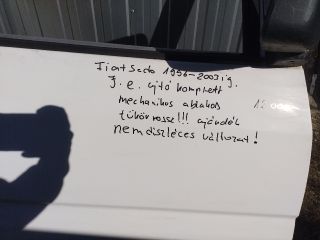 Fiat Seato 1996-2003 ig.
J. e. ajtó komplett
mechanikus ablakos
tükör rossz!!! ajándék
nem díszléces változat!